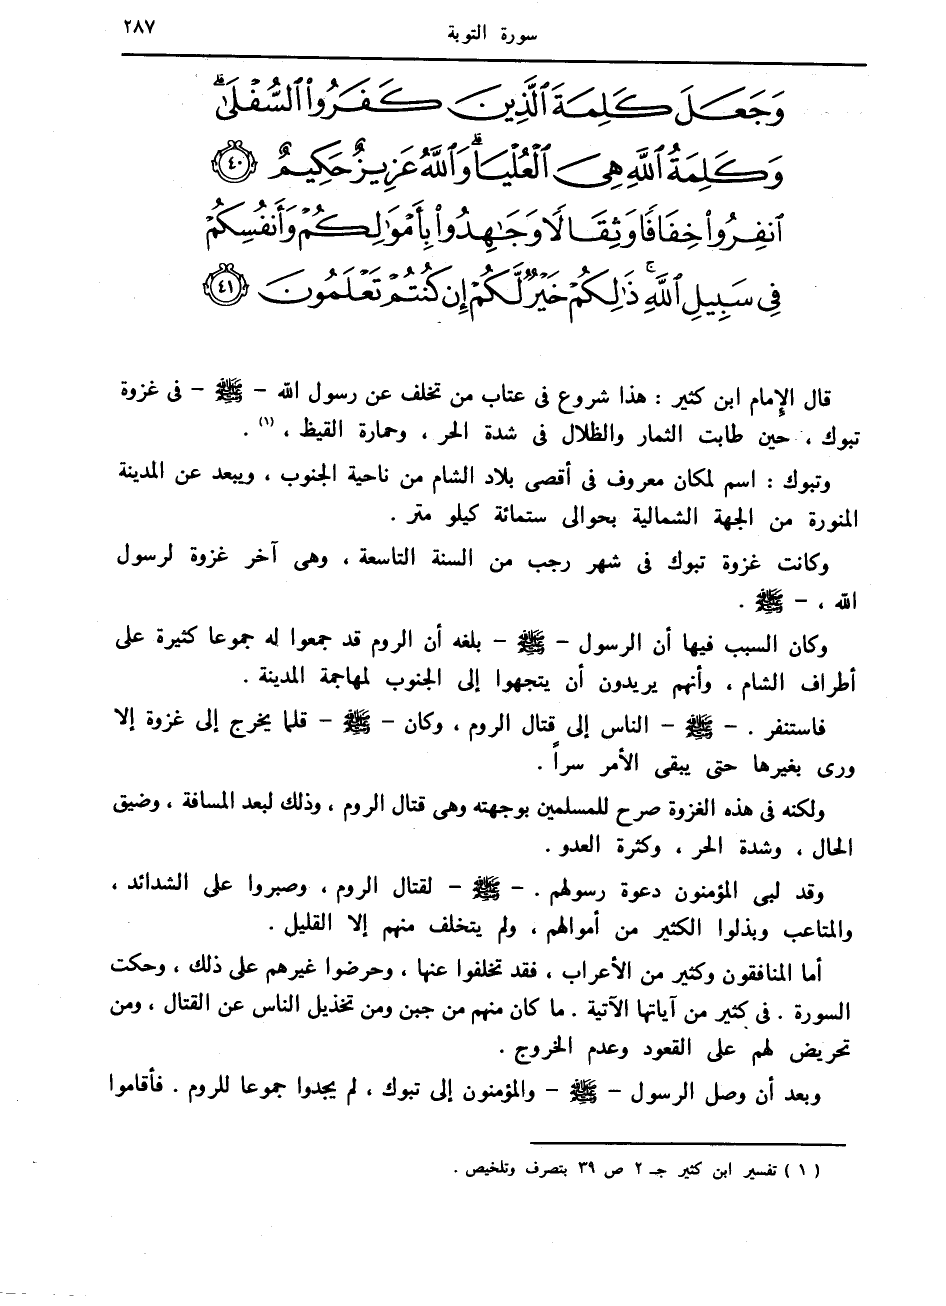 سورة التوبة
٢٨٧
وَجَعَلَ كَلِمَةَ ٱلَّذِينَ كَفَرُوا۟ ٱلسُّفْلَىٰ ۗ
وَكَلِمَةُ ٱللَّهِ هِىَ ٱلْعُلْيَا ۗ وَٱللَّهُ عَزِيزٌ حَكِيمٌ ٤٠
ٱنفِرُوا۟ خِفَافًا وَثِقَالًا وَجَـٰهِدُوا۟ بِأَمْوَٰلِكُمْ وَأَنفُسِكُمْ
فِى سَبِيلِ ٱللَّهِ ۚ ذَٰلِكُمْ خَيْرٌ لَّكُمْ إِن كُنتُمْ تَعْلَمُونَ ٤١
قال الإمام ابن كثير : هذا شروع فى عتاب من تخلف عن رسول الله - ﷺ - فى غزوة
تبوك ، حين طابت الثمار والظلال فى شدة الحر ، وحمارة القيظ ، (١) .
وتبوك : اسم لمكان معروف فى أقصى بلاد الشام من ناحية الجنوب ، ويبعد عن المدينة
المنورة من الجهة الشمالية بحوالى ستمائة كيلو متر .
وكانت غزوة تبوك فى شهر رجب من السنة التاسعة ، وهى آخر غزوة لرسول
الله ، - ﷺ .
وكان السبب فيها أن الرسول - ﷺ - بلغه أن الروم قد جمعوا له جموعا كثيرة على
أطراف الشام ، وأنهم يريدون أن يتجهوا إلى الجنوب لمهاجمة المدينة .
فاستنفر . - ﷺ - الناس إلى قتال الروم ، وكان - ﷺ - قلما يخرج إلى غزوة إلا
ورى بغيرها حتى يبقى الأمر سراً .
ولكنه فى هذه الغزوة صرح للمسلمين بوجهته وهى قتال الروم ، وذلك لبعد المسافة ، وضيق
الحال ، وشدة الحر ، وكثرة العدو .
وقد لبى المؤمنون دعوة رسولهم . - ﷺ - لقتال الروم ، وصبروا على الشدائد ،
والمتاعب وبذلوا الكثير من أموالهم ، ولم يتخلف منهم إلا القليل .
أما المنافقون وكثير من الأعراب ، فقد تخلفوا عنها ، وحرضوا غيرهم على ذلك ، وحكت
السورة . فى كثير من آياتها الآتية . ما كان منهم من جبن ومن تخذيل الناس عن القتال ، ومن
تحريض لهم على القعود وعدم الخروج .
وبعد أن وصل الرسول - ﷺ - والمؤمنون إلى تبوك ، لم يجدوا جموعا للروم . فأقاموا
(١) تفسير ابن كثير جـ ٢ ص ٣٩ بتصرف وتلخيص .